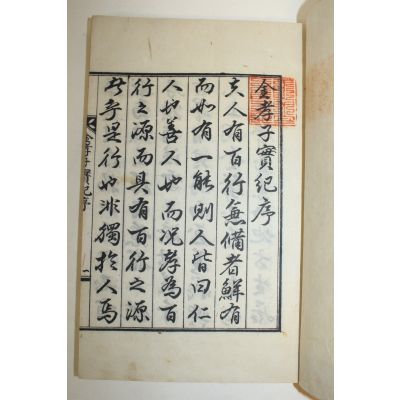 金孝子實紀序
夫人有百行無備者鮮有
而如有一能則人皆曰仁
人也善人也而況孝為百
行之源而具有百行之源
者乎是行也非獨於人焉
金孝子實紀序 一